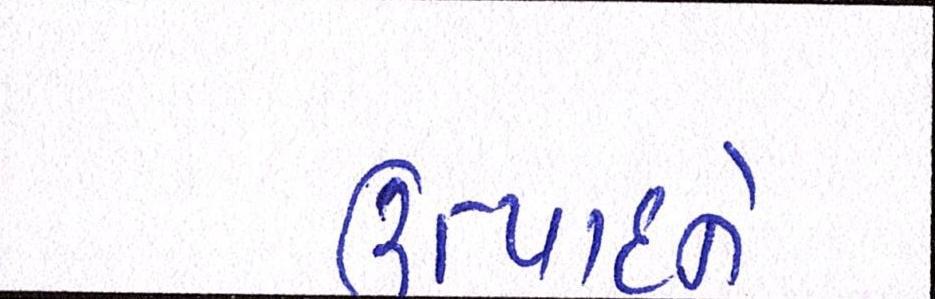 ઉત્પાદને